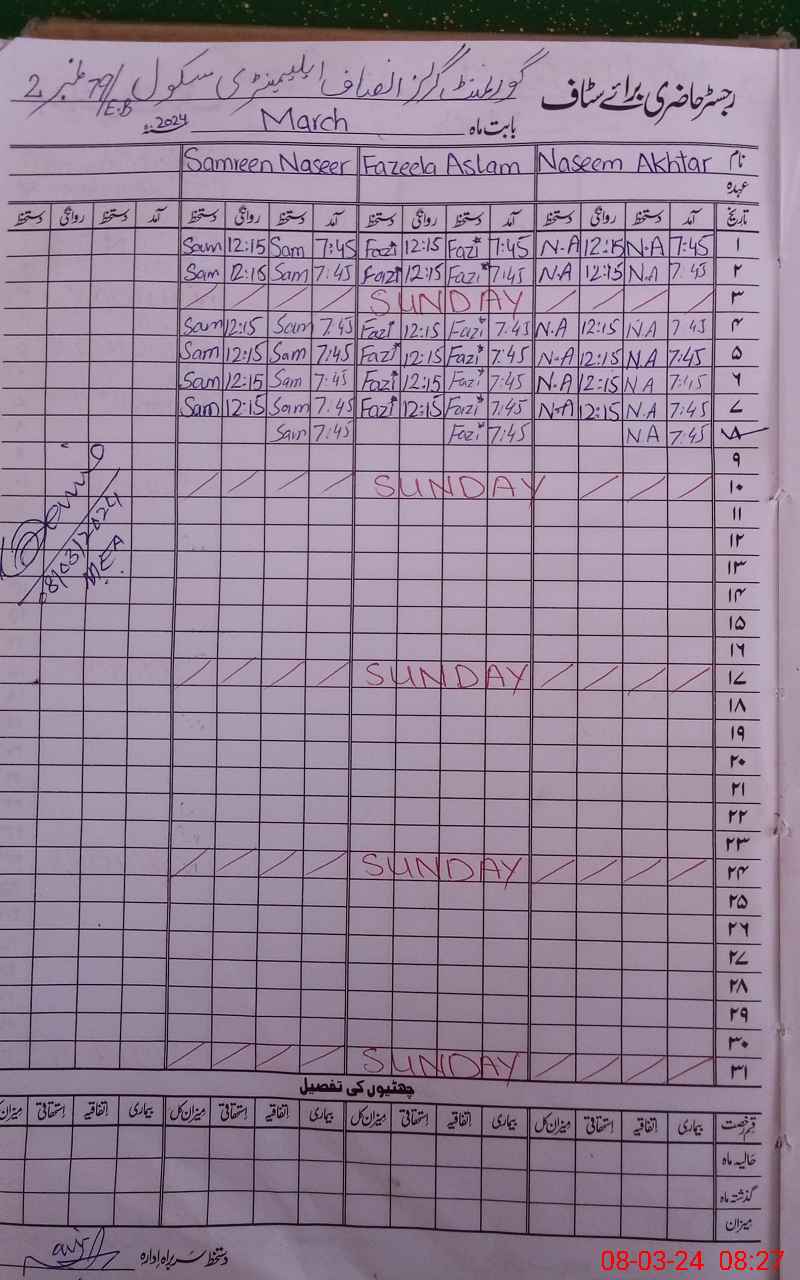 رجسٹر حاضری برائے سٹاف گورنمنٹ گرلز انصاف ایلیمنٹری سکول 79/E.B نمبر 2
بابت ماہ March 2024
نام Naseem Akhtar Fazeela Aslam Samreen Naseer
عہدہ
تاریخ آمد دستخط روانگی دستخط آمد دستخط روانگی دستخط آمد دستخط روانگی دستخط آمد دستخط روانگی دستخط
۱ 7:45 N.A 12:15 N.A 7:45 Fazi 12:15 Fazi 7:45 Sam 12:15 Sam
۲ 7:45 N.A 12:15 N.A 7:45 Fazi 12:15 Fazi 7:45 Sam 12:15 Sam
۳ SUNDAY
۴ 7:45 N.A 12:15 N.A 7:45 Fazi 12:15 Fazi 7:45 Sam 12:15 Sam
۵ 7:45 N.A 12:15 N.A 7:45 Fazi 12:15 Fazi 7:45 Sam 12:15 Sam
۶ 7:45 N.A 12:15 N.A 7:45 Fazi 12:15 Fazi 7:45 Sam 12:15 Sam
۷ 7:45 N.A 12:15 N.A 7:45 Fazi 12:15 Fazi 7:45 Sam 12:15 Sam
۸ 7:45 N.A 7:45 Fazi 7:45 Sam
۹
۱۰ SUNDAY
۱۱
08/03/2024
۱۲
MEA
۱۳
۱۴
۱۵
۱۶
۱۷ SUNDAY
۱۸
۱۹
۲۰
۲۱
۲۲
۲۳
۲۴ SUNDAY
۲۵
۲۶
۲۷
۲۸
۲۹
۳۰
۳۱ SUNDAY
چھٹیوں کی تفصیل
قسم رخصت بیماری اتفاقیہ استحقاقی میزان کل بیماری اتفاقیہ استحقاقی میزان کل بیماری اتفاقیہ استحقاقی میزان کل بیماری اتفاقیہ استحقاقی میزان
حالیہ ماہ
گذشتہ ماہ
میزان
دستخط سربراہ ادارہ
08-03-24 08:27